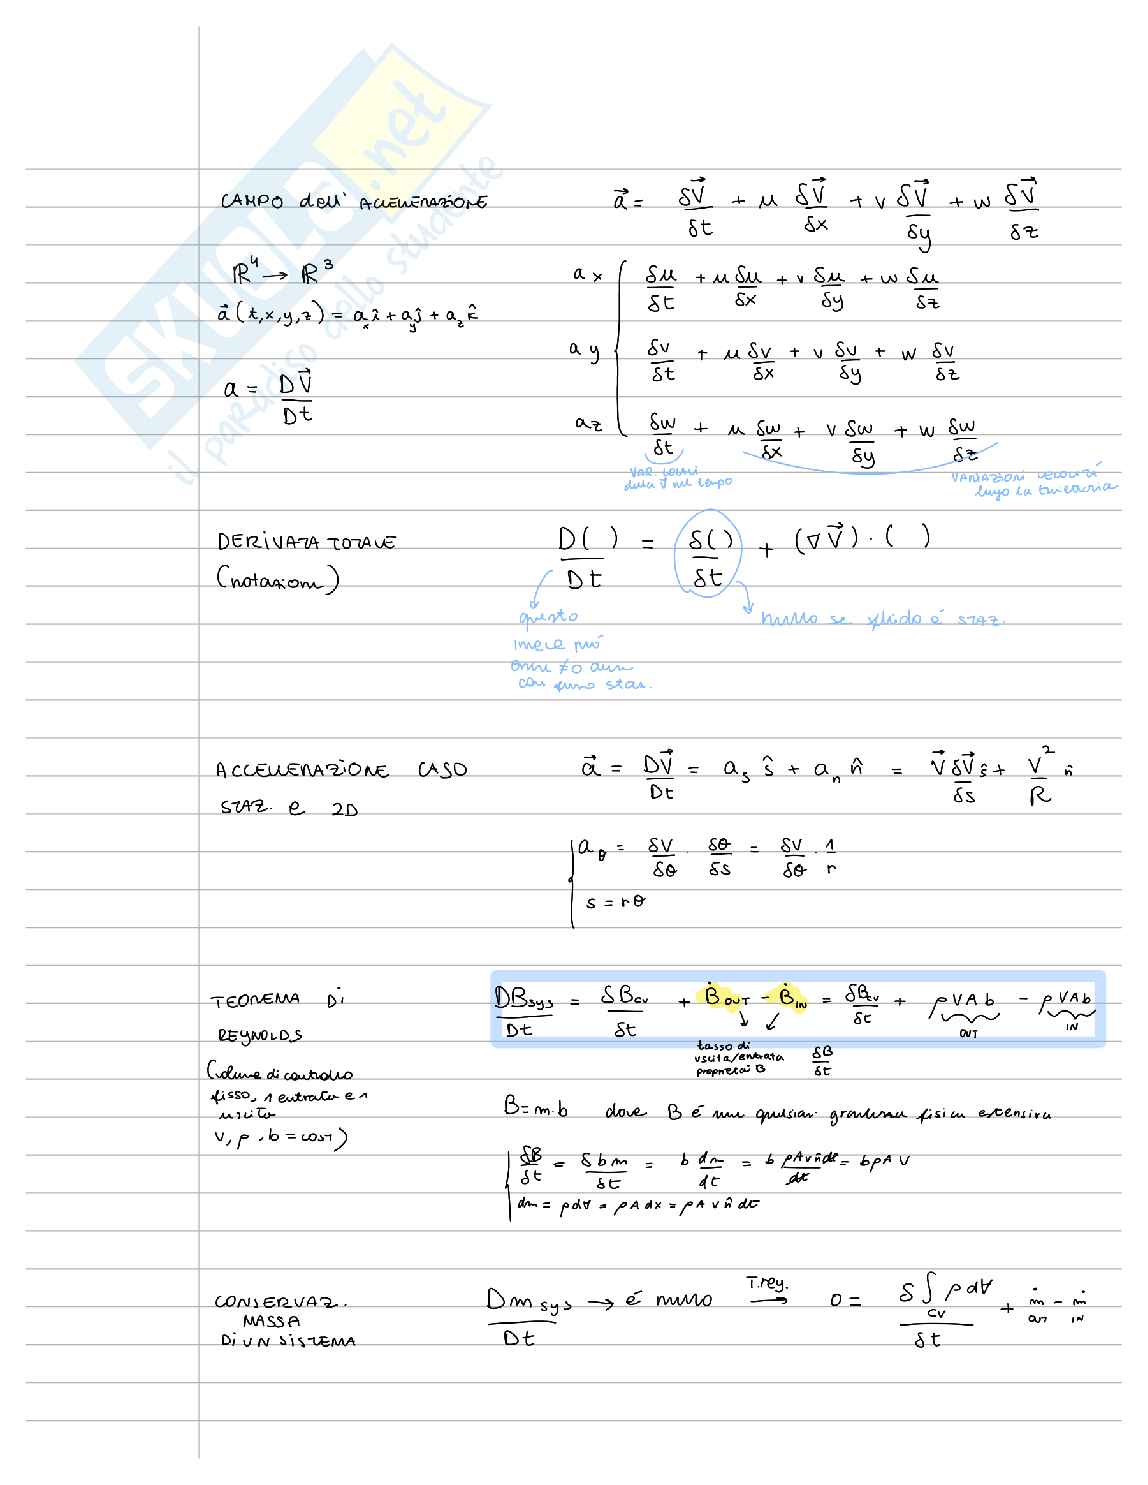 SKUOLA.net
il paradiso dello studente
CAMPO dell' ACCELERAZIONE
a⃗ = δV⃗/δt + u δV⃗/δx + v δV⃗/δy + w δV⃗/δz
ℝ⁴ → ℝ³
ax { δu/δt + u δu/δx + v δu/δy + w δu/δz
a⃗ (t,x,y,z) = aₓ î + a_y ĵ + a_z k̂
ay { δv/δt + u δv/δx + v δv/δy + w δv/δz
a = DV⃗/Dt
az { δw/δt + u δw/δx + v δw/δy + w δw/δz
VAR. locali
della V⃗ nel tempo
VARIAZIONI VELOCITÁ
lungo la traiettoria
DERIVATA TOTALE
(notazioni)
D( )/Dt = δ( )/δt + (∇V⃗)·( )
questo
invece può
essere ≠0 anche
con fluido staz.
nullo se fluido é STAZ.
ACCELLERAZIONE CASO
STAZ. e 2D
a⃗ = DV⃗/Dt = a_s ŝ + a_n n̂ = V⃗ δV⃗/δs ŝ + V²/R n̂
a_θ = δV/δθ · δθ/δs = δV/δθ · 1/r
s = rθ
TEOREMA Di
REYNOLDS
(volume di controllo
fisso, 1 entrata e 1
uscita
V, ρ, b = cost)
DB_sys/Dt = δB_cv/δt + Ḃ_OUT - Ḃ_IN = δB_cv/δt + ρVAb - ρVAb
OUT IN
tasso di
uscita/entrata
proprietá B
δB/δt
B = m·b dove B é una qualsiasi grandezza fisica estensiva
δB/δt = δbm/δt = b dm/dt = b ρAvn̂dt/dt = bρAV
dm = ρdV = ρAdx = ρAvn̂dt
CONSERVAZ.
MASSA
Di UN SISTEMA
Dm_sys/Dt → é nullo T.rey. → 0 = δ∫_CV ρdV/δt + ṁ_OUT - ṁ_IN